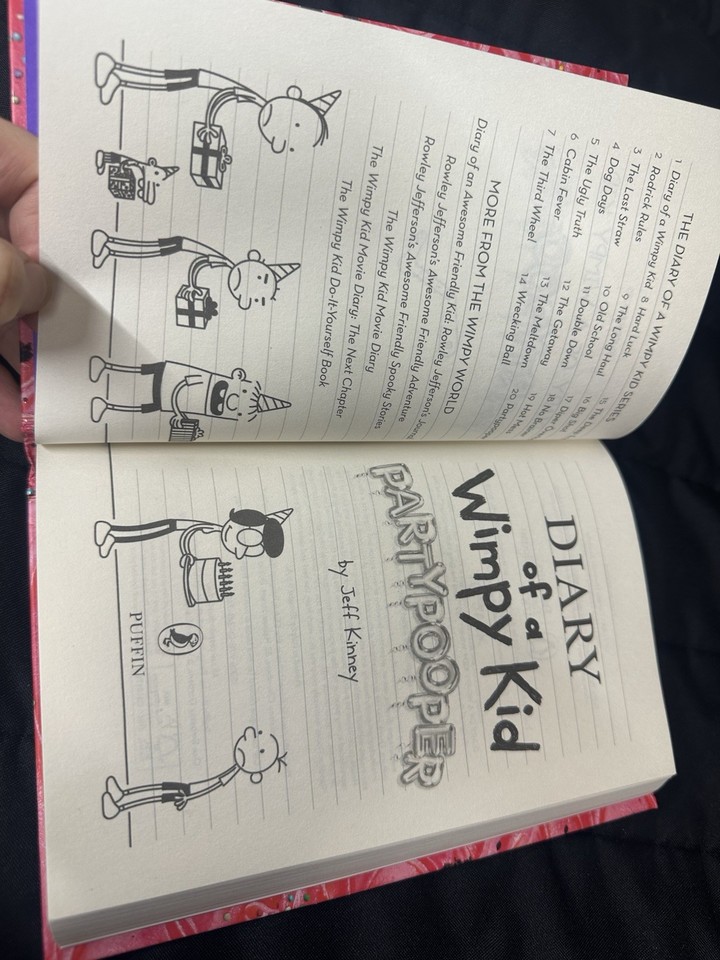 THE DIARY OF A WIMPY KID SERIES
1 Diary of a Wimpy Kid
2 Rodrick Rules
3 The Last Straw
4 Dog Days
5 The Ugly Truth
6 Cabin Fever
7 The Third Wheel
8 Hard Luck
9 The Long Haul
10 Old School
11 Double Down
12 The Getaway
13 The Meltdown
14 Wrecking Ball
15 The
16 Big
17
18 No
19 Hot
20
MORE FROM THE WIMPY WORLD
Diary of an Awesome Friendly Kid: Rowley Jefferson's
Rowley Jefferson's Awesome Friendly Adventure
Rowley Jefferson's Awesome Friendly Spooky Stories
The Wimpy Kid Movie Diary
The Wimpy Kid Movie Diary: The Next Chapter
The Wimpy Kid Do-It-Yourself Book
DIARY
of a
Wimpy Kid
PARTYPOOPER
by Jeff Kinney
PUFFIN